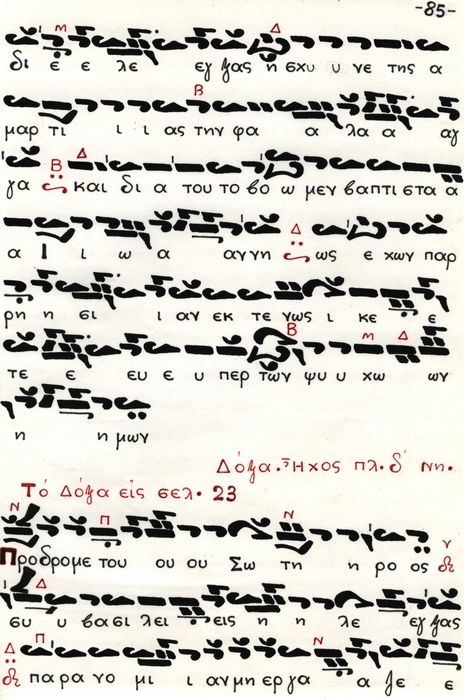 -85-
Μ Δ
δι ε ε λε εγ ξας η σχυ υ νε της α
Β
μαρ τι ι ι ας την φα α λα α αγ
Β Δ
γα και δι α του το βο ω μεν βαπτι στα α
Δ
α Ι ι ω α αννη ως ε χων παρ
ρη η σι ι αν εκ τε νως ι κε ε
Β Μ Δ
τε ε ευ ε υ περ των ψυ υ χω ων
η η μων
Δόξα. Ἦχος πλ. δ' Νη.
Τό Δόξα εἰς σελ. 23
Ν Π Ν
Προδρομε του ου ου Σω τη η ρο ος
Δ
συ υ βασι λει εις η η λε εγ ξας
Δ Π Ν
παρα νο μι ι αν μη εργα α ζε ε